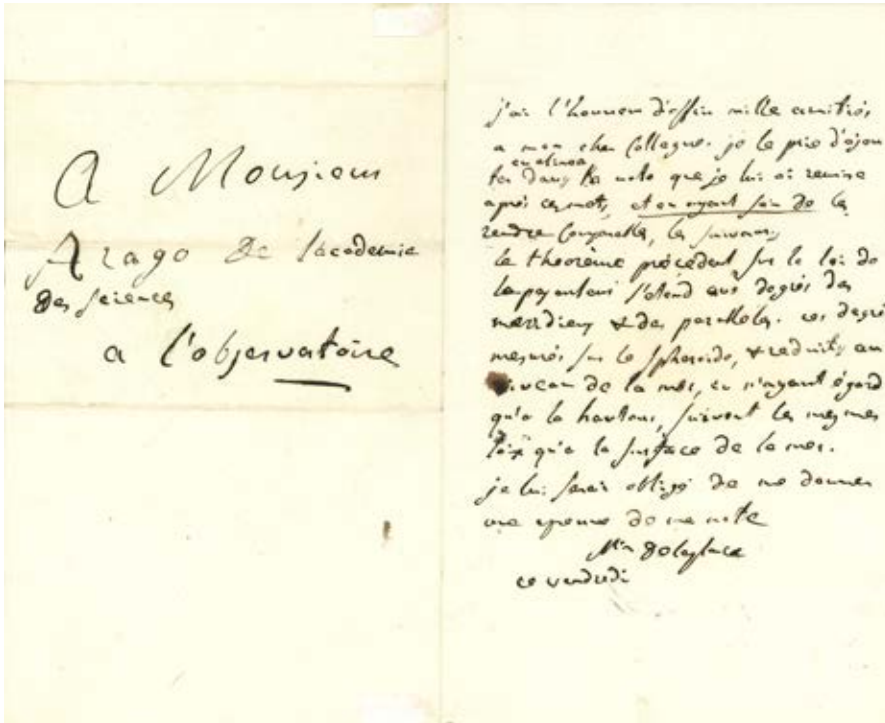 A Monsieur
Arago de l'academie
des sciences
a l'observatoire
j'ai l'honneur d'offrir mille amitiés
a mon cher Collegue. je le prie d'ajou
en alinea
ter dans la note que je lui ai remise
après ces mots, et en ayant soin de les
rendre comparables, les suivans,
le théorème précédent sur la loi de
la pesanteur s'étend aux degrés des
meridiens & des paralleles. ces degrés
mesurés sur le spheroide, & reduits au
niveau de la mer, en n'ayant égard
qu'a la hauteur, suivent les mesmes
loix qu'a la surface de la mer.
je lui serais obligé de me donner
une epreuve de ma note
Mis de Laplace
ce vendredi